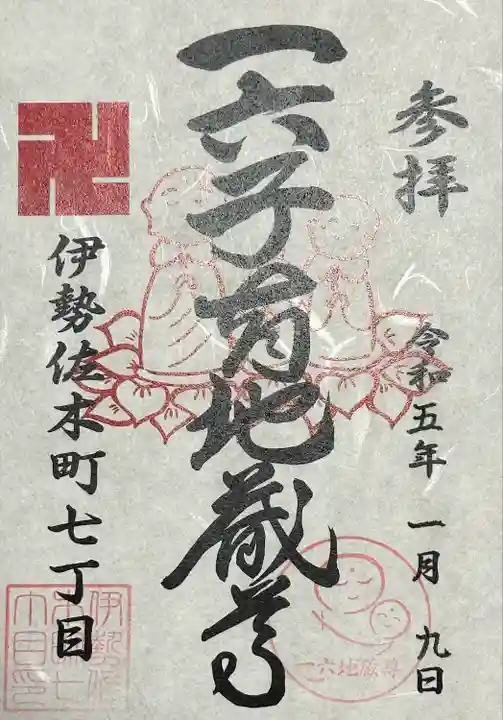 参拝
令和五年 一月 九日
一六子育地蔵尊
卍
伊勢佐木町七丁目
一六地蔵尊
伊勢佐
木町七
丁目印